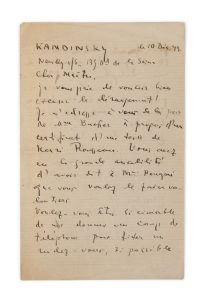 KANDINSKY le 10 Déc. 42
Neuilly s/S. 135 Bd de la Seine
Cher Maître,
je vous prie de vouloir bien
excuser le dérangement!
Je m'adresse à vous de la part
de Mme Bucher à propos d'un
certificat d'un toile de
Henri Rousseau. Vous avez
eu la grande amabilité
d'avoir dit à Mme
que vous voulez le faire vo-
lontiers.
Voulez-vous être si aimable
de me donner un coup de
téléphone pour fixer un
rendez-vous, si possible